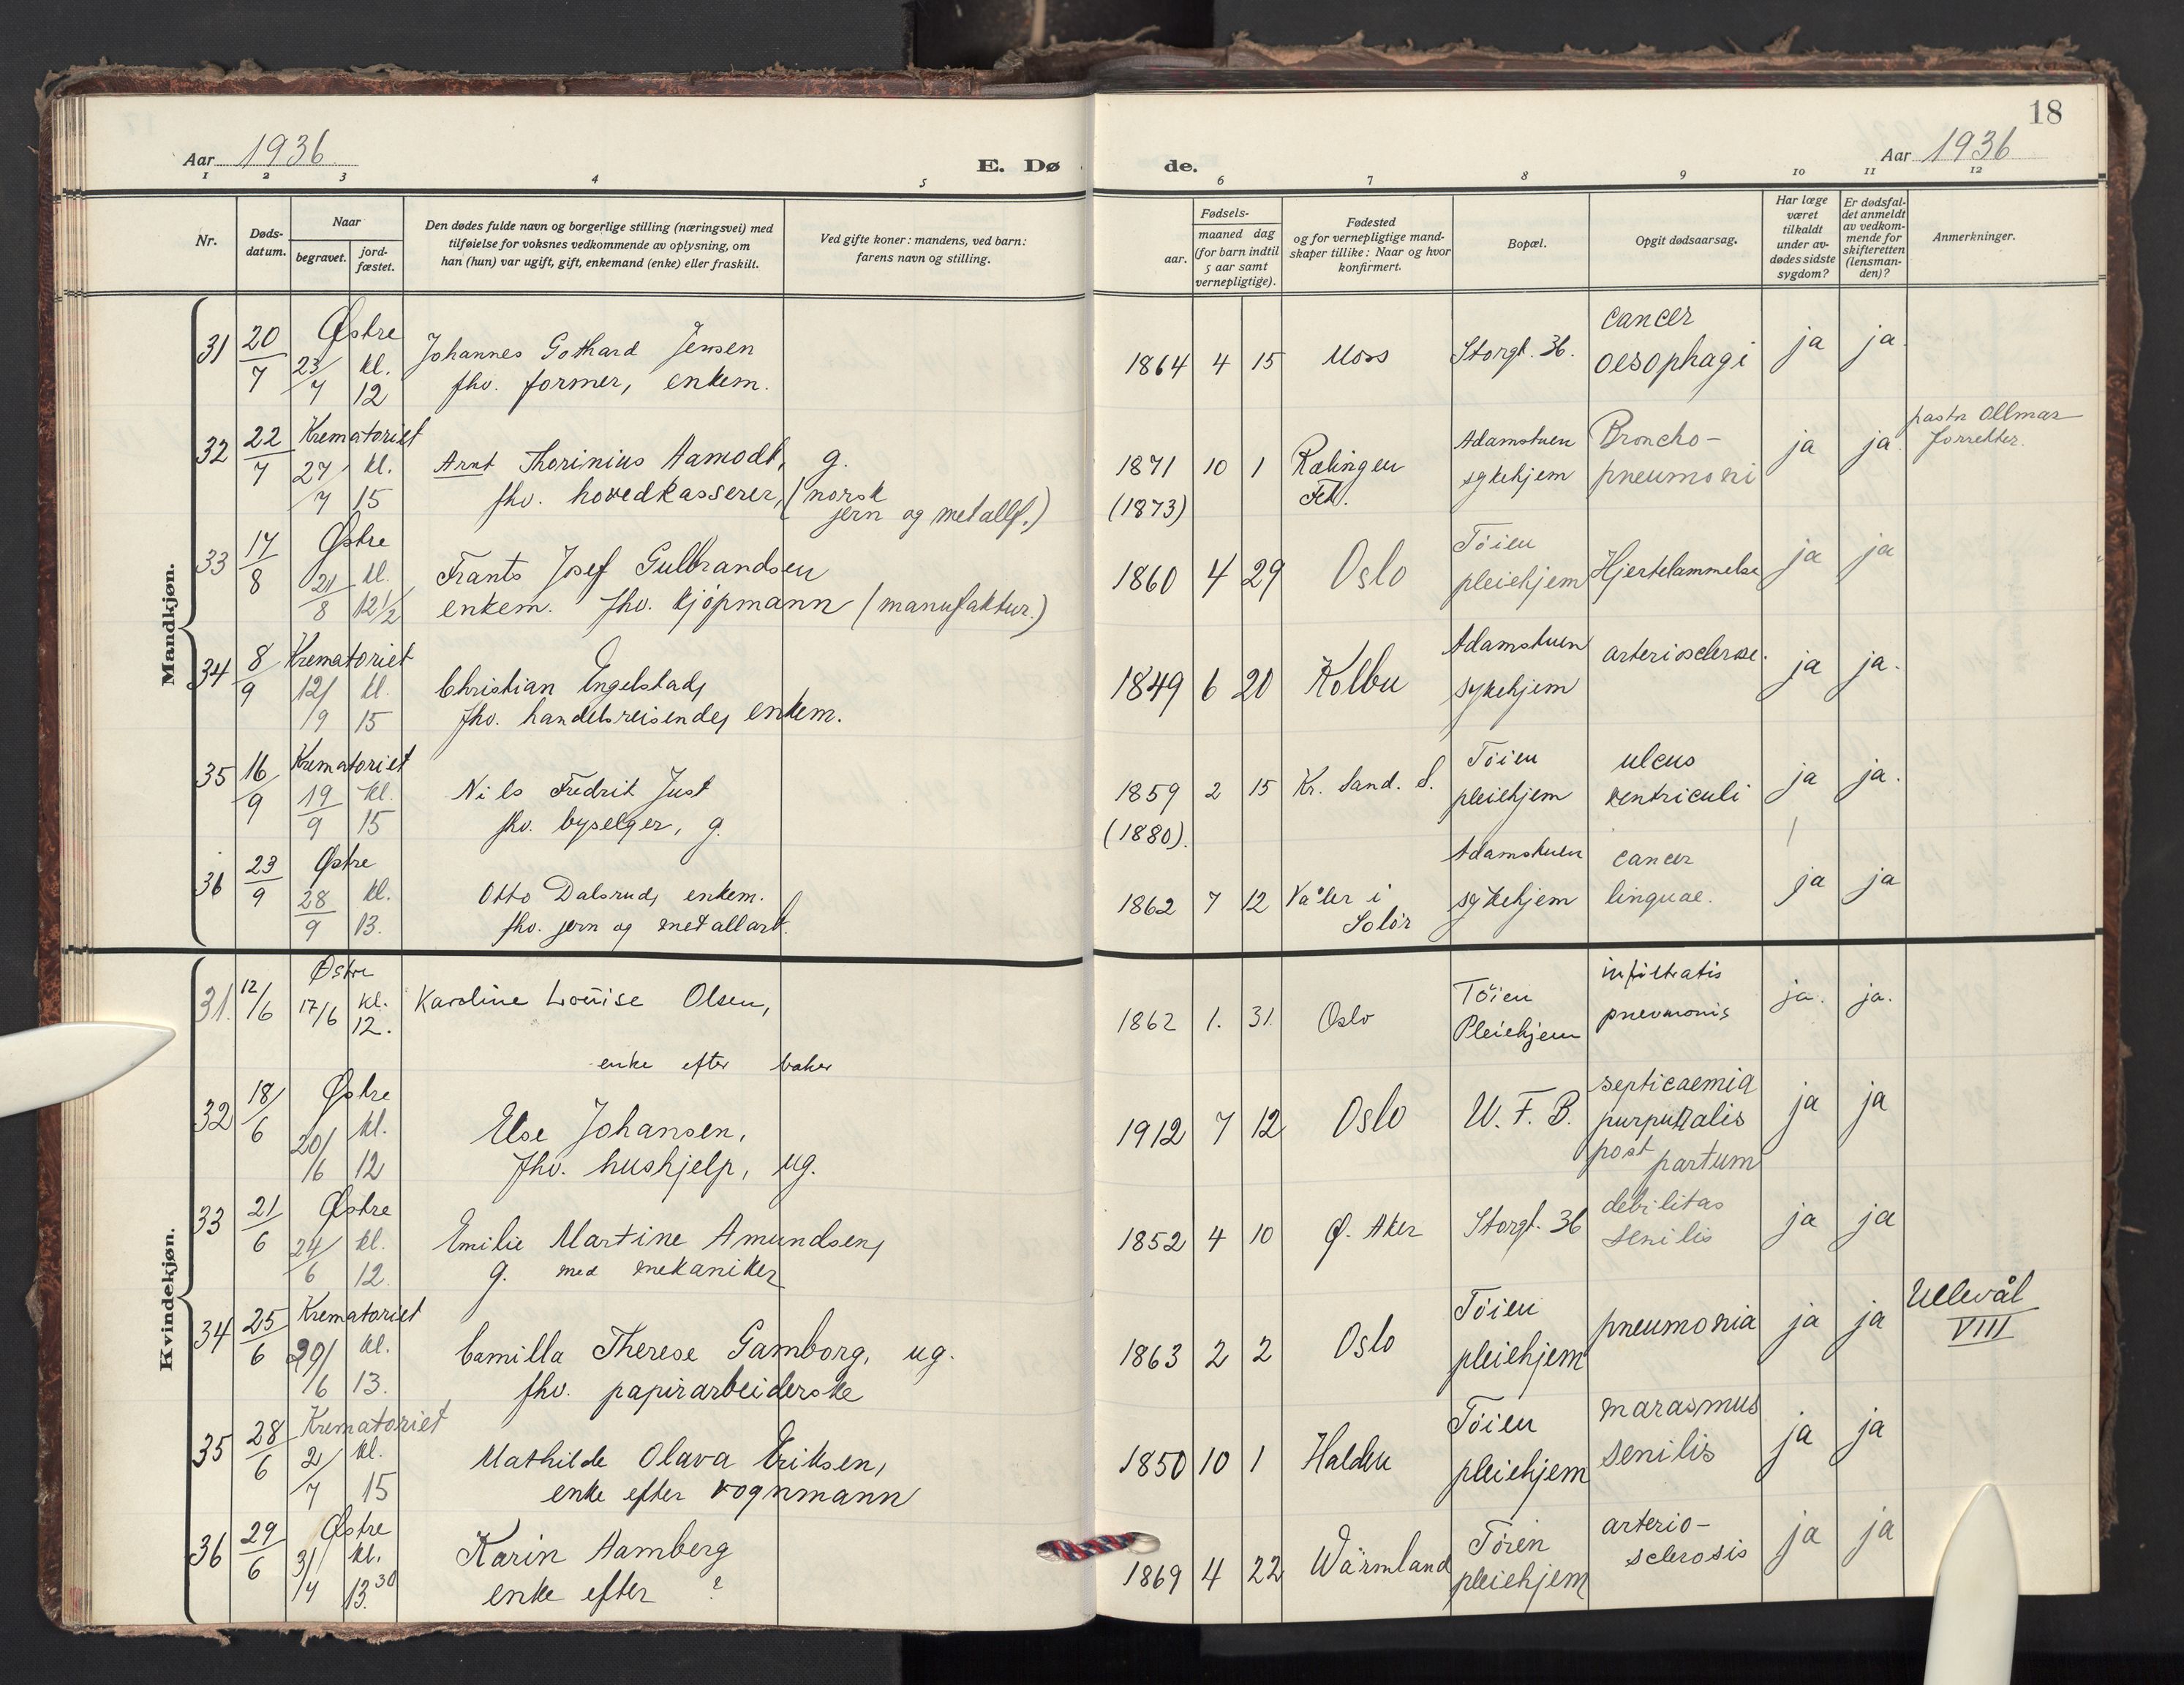 18
Aar 1936
E. Dø
de.
Aar 1936
1 2 3 4 5 6 7 8 9 10 11 12
Nr.
Døds-
datum.
Naar
begravet.
jord-
fæstet.
Den dødes fulde navn og borgerlige stilling (næringsvei) med
tilføielse for voksnes vedkommende av oplysning, om
han (hun) var ugift, gift, enkemand (enke) eller fraskilt.
Ved gifte koner: mandens, ved barn:
farens navn og stilling.
Fødsels-
aar.
maaned dag
(for barn indtil
5 aar samt
vernepligtige).
Fødested
og for vernepligtige mand-
skaper tillike: Naar og hvor
konfirmert.
Bopæl.
Opgit dødsaarsag.
Har læge
været
tilkaldt
under av-
dødes sidste
sygdom?
Er dødsfal-
det anmeldt
av vedkom-
mende for
skifteretten
(lensman-
den)?
Anmerkninger.
Mandkjøn.
31 20/7 Østre 23/7 kl. 12
Johannes Gothard Jensen
fhv. former, enkem.
1864 4 15 Moss Storgt. 36. cancer
oesophagi ja ja.
32 22/7 Krematoriet 27/7 kl. 15
Arnt Thorinius Aamodt, g.
fhv. hovedkasserer, (norsk
jern og metallf.)
1871 10 1 Rælingen
(1873) Fet.
Adamstuen
sykehjem
Broncho-
pneumoni ja ja
pastor Ollmar
forretter.
33 17/8 Østre 21/8 kl. 12 1/2
Frants Josef Gulbrandsen
enkem. fhv. kjøpmann (manufaktur.)
1860 4 29 Oslo
Töien
pleiehjem Hjertelammelse ja ja
34 8/9 Krematoriet 12/9 kl. 15
Christian Engelstad,
fhv. handelsreisende, enkem.
1849 6 20 Kolbu
Adamstuen
sykehjem
arteriosclerose. ja ja.
35 16/9 Krematoriet 19/9 kl. 15
Nils Fredrik Just
fhv. byselger, g.
1859 2 15 Kr. Sand. S.
(1880).
Töien
pleiehjem
ulcus
ventriculi ja ja.
36 23/9 Østre 28/9 kl. 13.
Otto Dalsrud, enkem.
fhv. jern og metallarb.
1862 7 12 Våler i
Solör
Adamstuen
sykehjem
cancer
linguae. ja ja
Kvindekjøn.
31. 12/6 Østre 17/6 kl. 12.
Karoline Louise Olsen,
enke efter baker
1862 1. 31. Oslo
Töien
Pleiehjem
infiltratis
pneumonis ja. ja.
32 18/6 Østre 20/6 kl. 12
Else Johansen,
fhv. hushjelp, ug.
1912 7 12 Oslo U. F. B.
septicaemia
purpuralis
post partum ja ja
33 21/6 Østre 24/6 kl. 12.
Emilie Martine Amundsen,
g. med mekaniker
1852 4 10 Ø. Aker Storgt. 36
debilitas
senilis ja ja
34 25/6 Krematoriet 29/6 kl. 13.
Camilla Therese Gamborg, ug.
fhv. papirarbeiderske
1863 2 2 Oslo
Töien
pleiehjem
pneumonia ja ja
Ullevål
VIII
35 28/6 Krematoriet 2/7 kl. 15
Mathilde Olava Eriksen,
enke efter vognmann
1850 10 1 Halden
Töien
pleiehjem
marasmus
senilis ja ja
36 29/6 Østre 3/7 kl. 13.30
Karin Aamberg
enke efter ?
1869 4 22 Wärmland
Töien
pleiehjem
arterio-
sclerosis ja ja